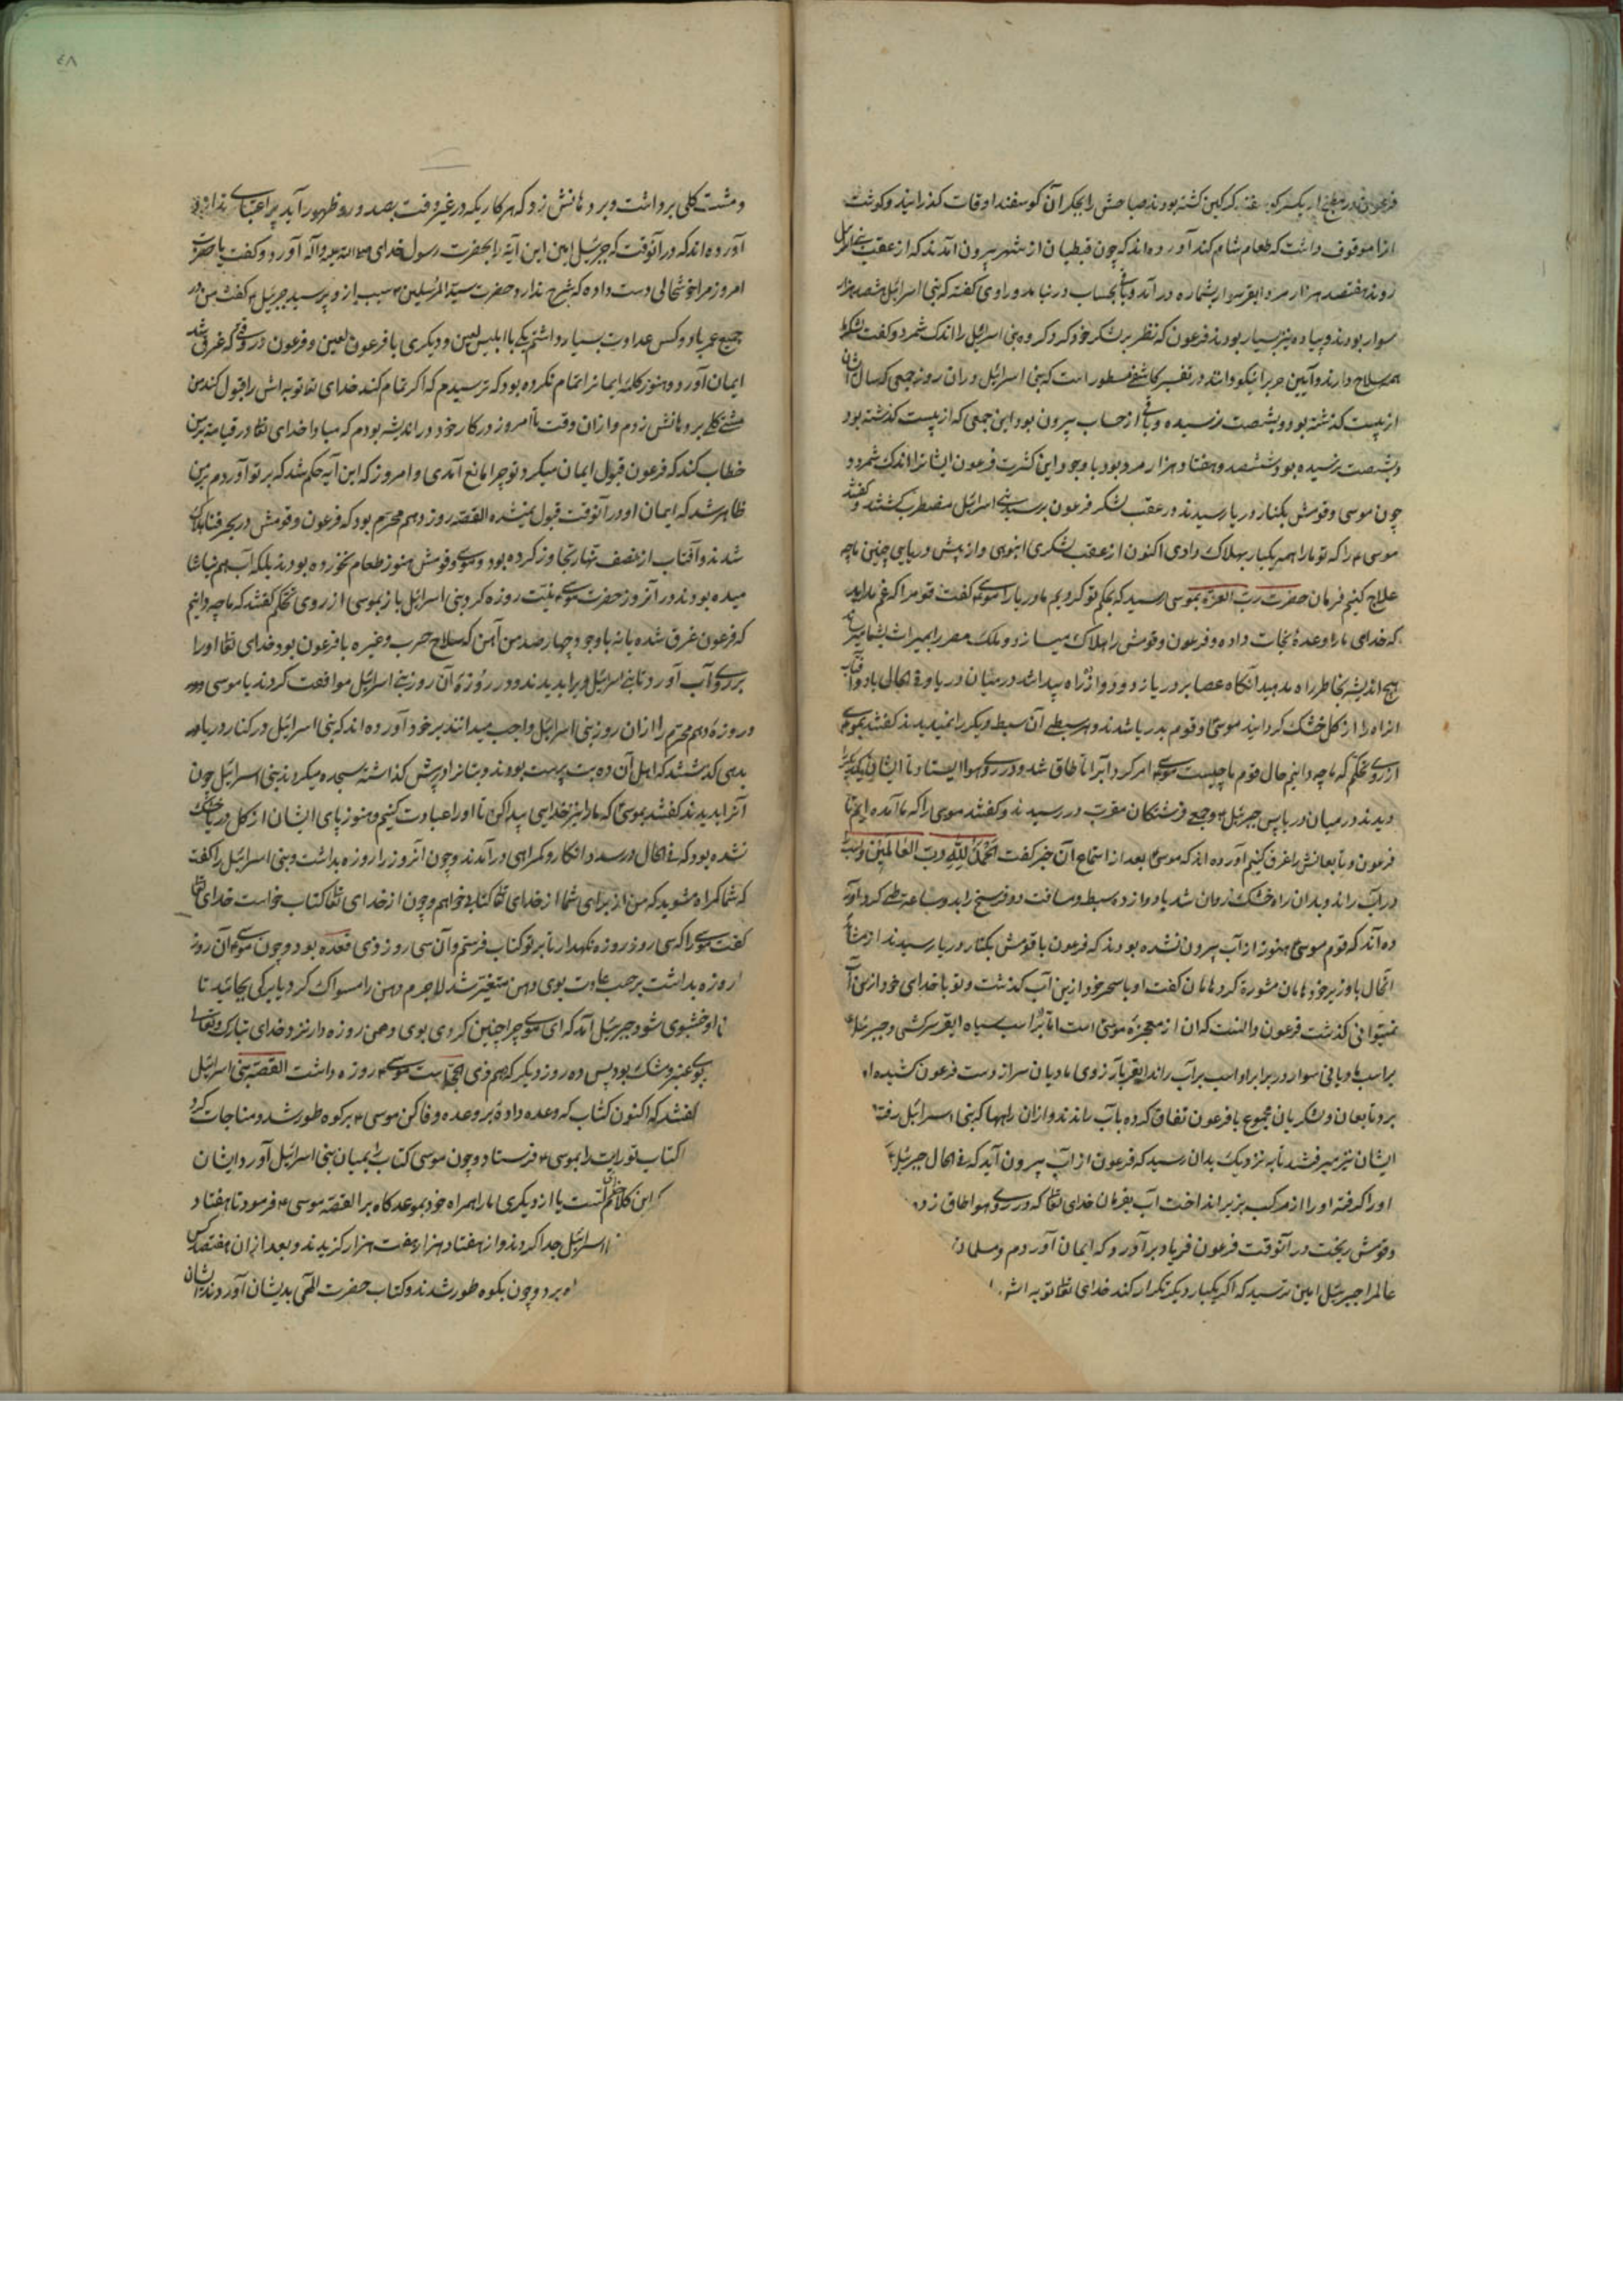 فرعون در مطبخ از یکسر گوسفند که کین کشته بودند صباحش را بجکر آن گوسفند اوقات گذرانید و گوشت
ازا موقوف داشت که طعام شام کند آورده‌اند که چون قبطیان از شهر بیرون آمدند که از عقب بنی اسرائیل
روند هفتصد هزار مرد ابقر سوار بشماره در آمد و باقی بحساب در نیامد و راوی گفته که بنی اسرائیل ششصد هزار
سوار بودند و پیاده نیز بسیار بودند فرعون که نظر بر لشکر خود کرد گروه بنی اسرائیل را اندک شمرد و گفت لشکر ما
همه سلاح دارند و آیین حرب را نیکو دانند در تفسیر کاشفی مسطور است که بنی اسرائیل در ان روز جمعی که سال ایشان
از بیست گذشته بود و بشصت نرسیده و باقی از حساب بیرون بود این جمعی که از بیست گذشته بود
و بشصت نرسیده بود ششصد و هفتاد هزار مرد بود با وجود این کثرت فرعون ایشانرا اندک شمرد و
چون موسی و قومش بکنار دریا رسیدند در عقب لشکر فرعون برسید بنی اسرائیل مضطرب گشتند و گفتند
موسی را که تو ما را همه یکبار بهلاک دادی اکنون از عقب لشکری انبوهی و از پیش دریایی چنین ما چه
علاج کنیم فرمان حضرت رب العزه بموسی رسید که بحکم تو کردیم ما دریا را موسی گفت قوم را که غم مدارید
که خدای ما را وعدهٔ نجات داده و فرعون و قومش را هلاک میسازد و ملک مصر را بمیراث بشما میرساند
هیچ اندیشه بخاطر راه مدهید آنگاه عصا بر دریا زد و دوازده راه پیدا شد در میان دریا و فی الحال باد و آفتاب
انراه را از گل خشک گردانید موسی و قوم بدریا شدند و هر سبطی آن سبط دیگر را نمیدیدند گفتند بموسی
از روی تحکم که ما چه دانیم حال قوم ما چیست موسی امر کرد آبرا تا طاق شد و در روی هوا ایستاد تا ایشان یکدیگر را
دیدند در میان دریا پس جبرئیل و جمعی فرشتگان مقرب در رسیدند و گفتند موسی را که ما آمده ایم تا
فرعون و تابعانش را غرق کنیم آورده اند که موسی بعد از استماع آن خبر گفت الحمد لله رب العالمین و اسب را
در آب راند و بدان راه خشک روان شد با دوازده سبط و مسافت دو فرسخ را بدو ساعت طی کرد و آور
ده‌اند که قوم موسی هنوز از آب بیرون نشده بودند که فرعون با قومش بکنار دریا رسیدند از مشاهده
انحال با وزیر خود هامان مشورة کرد هامان گفت او با سحر خود ازین آب گذشت و تو با خدای خود ازین آب
نمیتوانی گذشت فرعون دانست که ان از معجزهٔ موسی است اما بر اسب سیاه ابقر سرکشی و جبرئیل
بر اسب مادیانی سوار در برابر او اسب بر آب راند ابقر بآرزوی مادیان سر از دست فرعون کشیده
برد تابعان و لشکریان مجموع با فرعون تفاق کرده بآب راندند و از ان راهها که بنی اسرائیل رفته
ایشان نیز میرفتند تا به نزدیک بدان رسید که فرعون از آب بیرون آید که فی الحال جبرئیل
او را گرفته او را از مرکب بزیر انداخت آب بفرمان خدای تعالی که در روی هوا طاق زده
و قومش ریخت در آنوقت فرعون فریاد برآورد که ایمان آوردم و مسلمان
عالم را جبرئیل امین ترسید که اگر یکبار دیگر تکرار کند خدای تعالی توبه اش
و مشت گلی برداشت و بر دهانش زد که هر کاریکه در غیر وقت بصدور و ظهور آید پر اعتباری ندارد و
آورده‌اند که در آنوقت که جبرئیل امین این آیه را بحضرت رسول خدای صلی الله علیه و آله آورد و گفت یا حضرت
امروز مرا خوشحالی دست داده که شرح ندارد حضرت سید المرسلین سبب از و پرسید جبرئیل گفت من در
جمیع عمر با دو کس عداوت بسیار داشتم یکی با ابلیس لعین و دیگری با فرعون لعین و فرعون در وقتی که غرق میشد
ایمان آورد و هنوز کلمهٔ ایمانرا تمام نکرده بود که ترسیدم که اگر تمام کند خدای تعالی توبه اش را قبول کند من
مشتی گل بر دهانش زدم و از ان وقت تا امروز در کار خود در اندیشه بودم که مبادا خدای تعالی در قیامت بمن
خطاب کند که فرعون قبول ایمان میکرد تو چرا مانع آمدی و امروز که این آیه حکم شد که بر تو آوردم بمن
ظاهر شد که ایمان او در آنوقت قبول نمیشده القصه روز دهم محرم بود که فرعون و قومش در بحر فنا هلاک
شدند و آفتاب از نصف نهار تجاوز کرده بود و موسی و قومش هنوز طعام نخورده بودند بلکه آب هم نیاشا
میده بودند در آنروز حضرت موسی نیت روزه کرد بنی اسرائیل باز بموسی از روی تحکم گفتند که ما چه دانیم
که فرعون غرق شده یا نه با وجود چهار صد من آهن که سلاح حرب و غیره با فرعون بود خدای تعالی او را
بر روی آب آورد تا بنی اسرائیل ویرا بدیدند و در روزهٔ آن روز بنی اسرائیل موافقت کردند با موسی و
در روزهٔ دهم محرم را از ان روز بنی اسرائیل واجب میدانند بر خود آورده اند که بنی اسرائیل در کنار دریا
بدهی گذشتند که اهل آن ده بت پرست بودند و بتانرا در پیش گذاشته سجده میکردند بنی اسرائیل چون
آنرا بدیدند گفتند بموسی که ما را نیز خدایی پیدا کن تا او را عبادت کنیم و هنوز پای ایشان از گل دریا خشک
نشده بود که فی الحال در صدد انکار و گمراهی در آمدند و چون انروز را روزه بداشت و بنی اسرائیل را گفت
که شما گمراه مشوید که من از برای شما از خدای تعالی کتاب خواهم و چون از خدای تعالی کتاب خواست خدای تعالی
گفت موسی را که سی روز روزه نگهدار تا بر تو کتاب فرستم و آن سی روز ذی قعده بود و چون موسی آن روز
روزه بداشت بر حسب عادت بوی دهن متغیر شد لاجرم دهن را مسواک کرد یا برگی بخائید تا
تا او خوشبوی شود جبرئیل آمد که ای موسی چرا چنین کردی بوی دهن روزه دار نزد خدای تبارک و تعالی
بوی عنبر و مشک بود پس ده روز دیگر که هم ذی الحجه است موسی روزه داشت القصه بنی اسرائیل
گفتند که اکنون کتاب که وعده دادهٔ بر وعده وفا کن موسی بر کوه طور شد و مناجات کرد
کتاب تورات را بموسی فرستاد و چون موسی کتاب بمیان بنی اسرائیل آورد ایشان
که این کلام خدای تست یا از دیگری ما را همراه خود بموعدگاه بر القصه موسی فرمود تا هفتاد
اسرائیل جدا کردند و از هفتاد هزار هفت هزار گزیدند و بعد از ان هفتصد کس
برد و چون بکوه طور شدند و کتاب حضرت الهی بدیشان آوردند ایشان